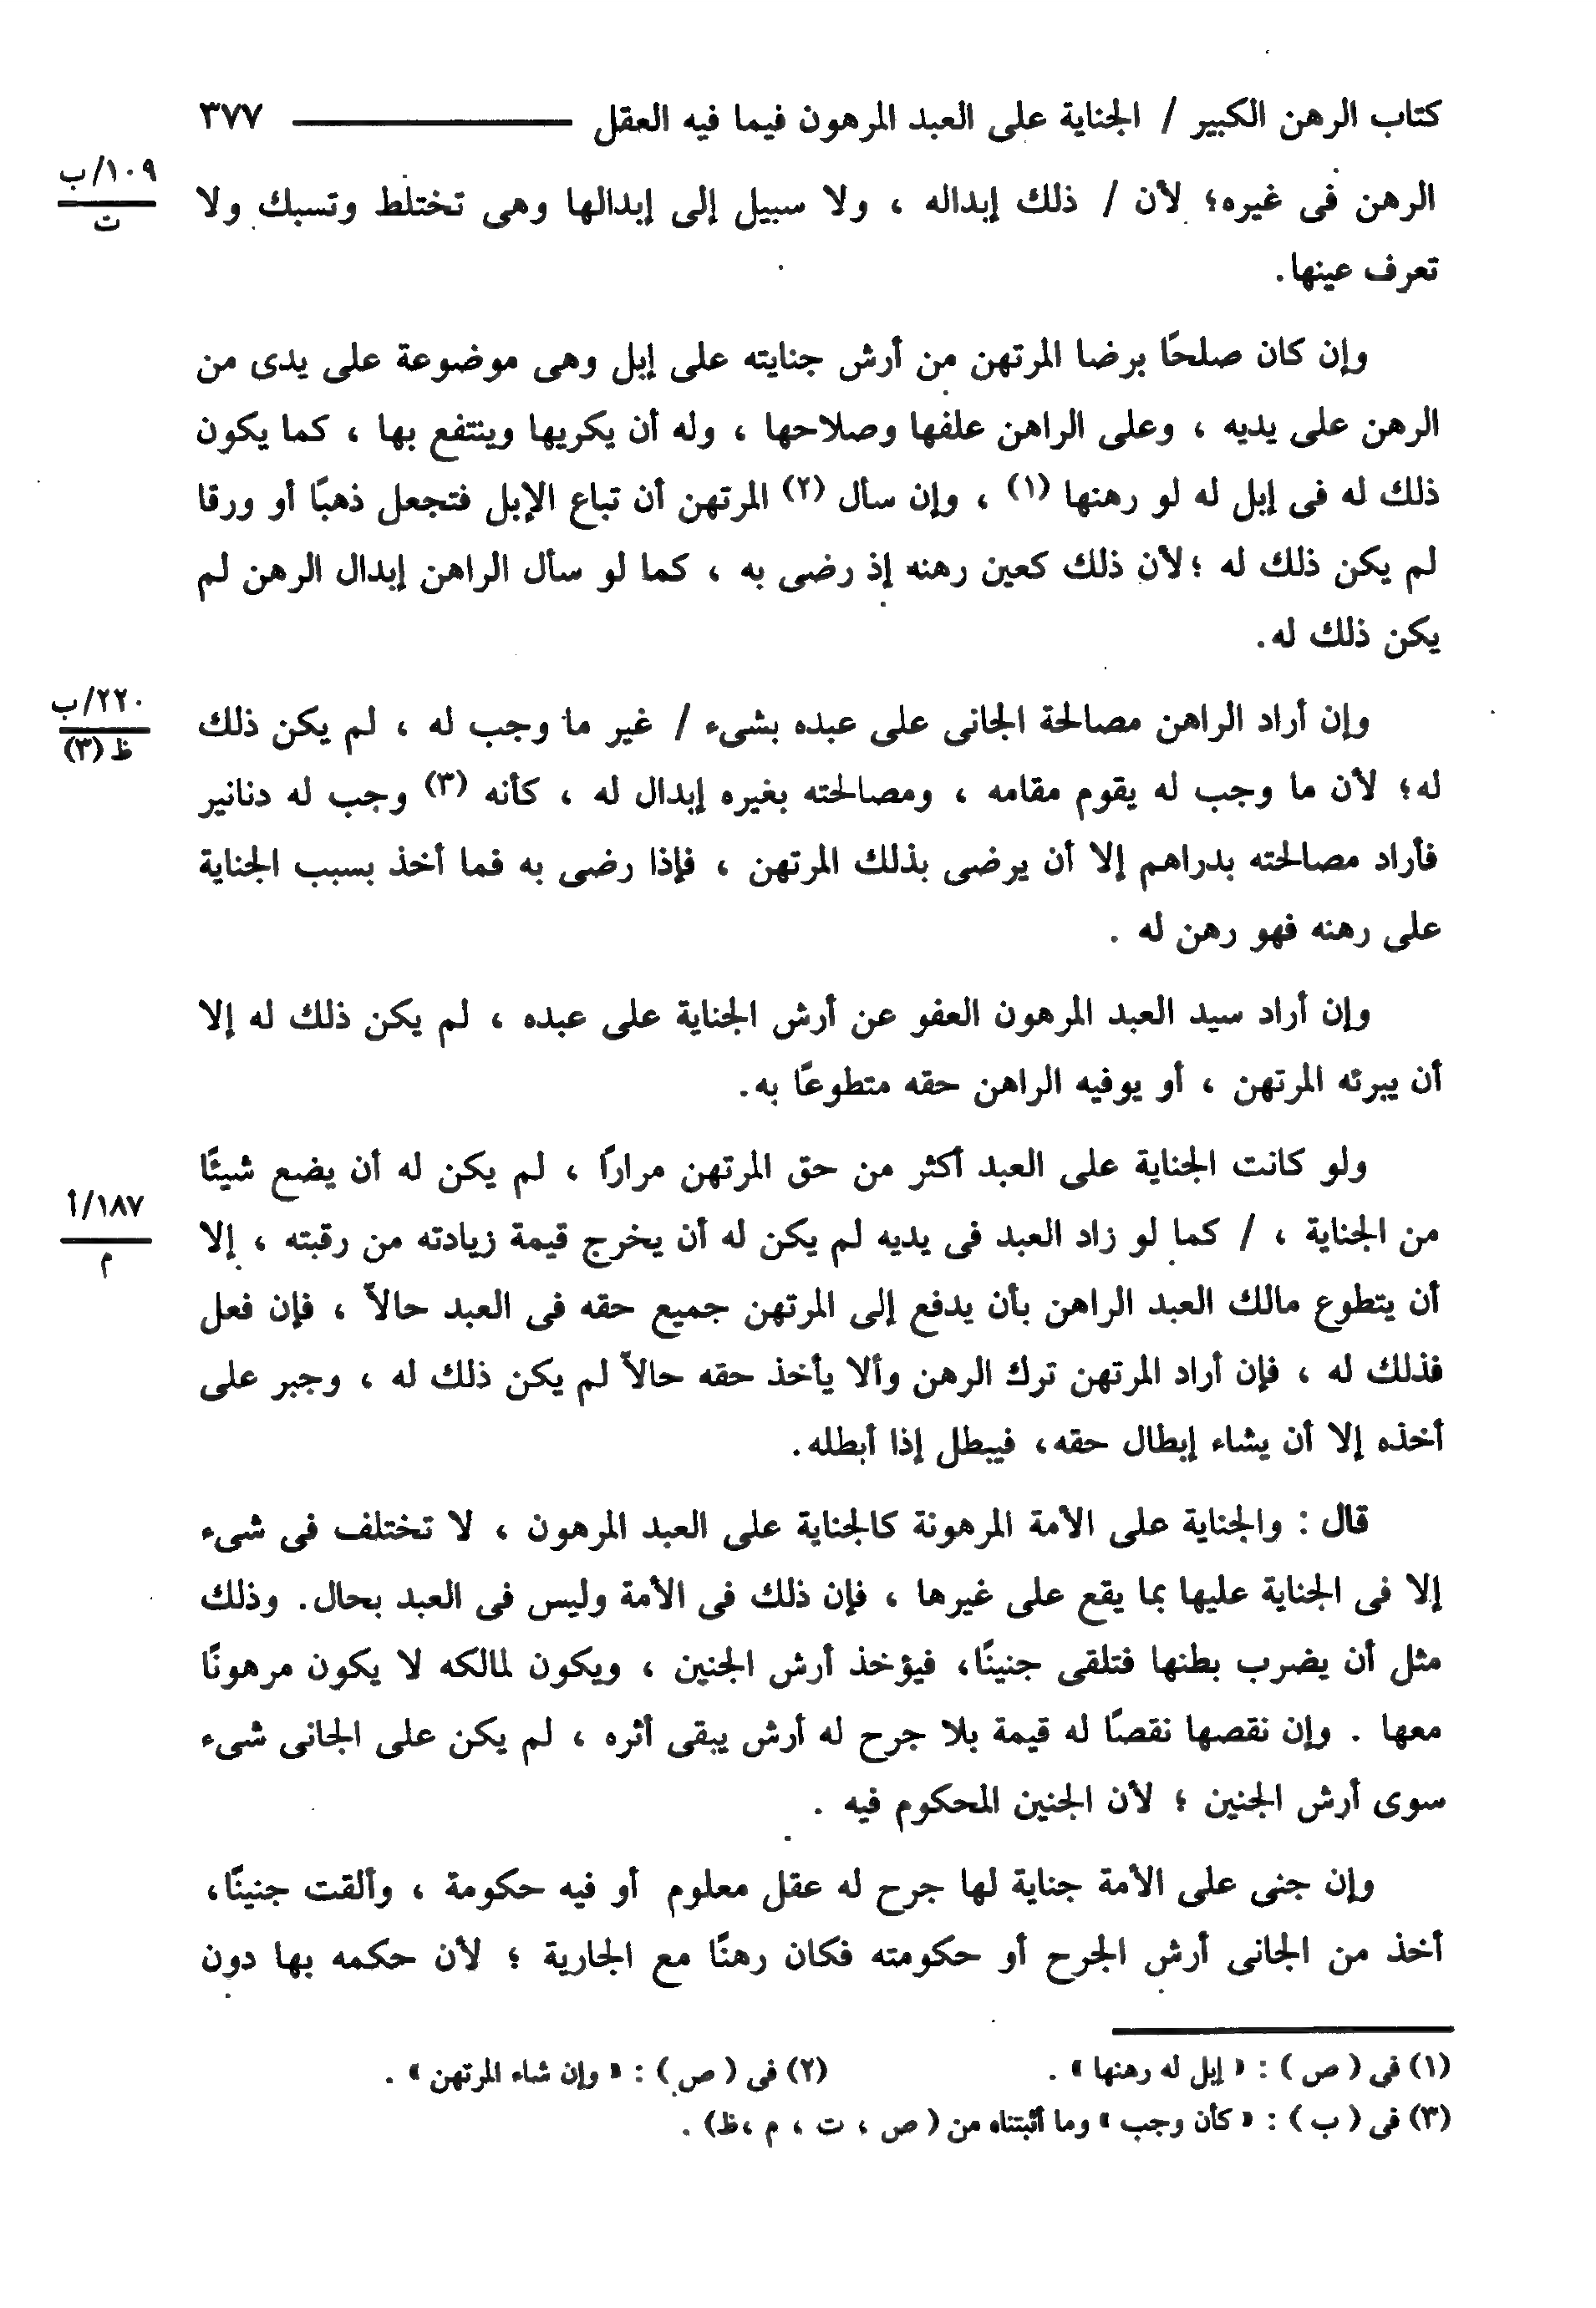 كتاب الرهن الكبير / الجناية على العبد المرهون فيما فيه العقل ٣٧٧
١٠٩/ب
ت
الرهن فى غيره؛ لأن / ذلك إبداله ، ولا سبيل إلى إبدالها وهى تختلط وتسبك ولا
تعرف عينها.
وإن كان صلحًا برضا المرتهن من أرش جنايته على إبل وهى موضوعة على يدى من
الرهن على يديه ، وعلى الراهن علفها وصلاحها ، وله أن يكريها وينتفع بها ، كما يكون
ذلك له فى إبل له لو رهنها (١) ، وإن سأل (٢) المرتهن أن تباع الإبل فتجعل ذهبًا أو ورقا
لم يكن ذلك له ؛لأن ذلك كعين رهنه إذ رضى به ، كما لو سأل الراهن إبدال الرهن لم
يكن ذلك له.
٢٢٠/ب
ظ (٣)
وإن أراد الراهن مصالحة الجانى على عبده بشىء / غير ما وجب له ، لم يكن ذلك
له؛ لأن ما وجب له يقوم مقامه ، ومصالحته بغيره إبدال له ، كأنه (٣) وجب له دنانير
فأراد مصالحته بدراهم إلا أن يرضى بذلك المرتهن ، فإذا رضى به فما أخذ بسبب الجناية
على رهنه فهو رهن له .
وإن أراد سيد العبد المرهون العفو عن أرش الجناية على عبده ، لم يكن ذلك له إلا
أن يبرئه المرتهن ، أو يوفيه الراهن حقه متطوعًا به.
ولو كانت الجناية على العبد أكثر من حق المرتهن مرارًا ، لم يكن له أن يضع شيئًا
١٨٧/أ
م
من الجناية ، / كما لو زاد العبد فى يديه لم يكن له أن يخرج قيمة زيادته من رقبته ، إلا
أن يتطوع مالك العبد الراهن بأن يدفع إلى المرتهن جميع حقه فى العبد حالاً ، فإن فعل
فذلك له ، فإن أراد المرتهن ترك الرهن وألا يأخذ حقه حالاً لم يكن ذلك له ، وجبر على
أخذه إلا أن يشاء إبطال حقه، فيبطل إذا أبطله.
قال : والجناية على الأمة المرهونة كالجناية على العبد المرهون ، لا تختلف فى شىء
إلا فى الجناية عليها بما يقع على غيرها ، فإن ذلك فى الأمة وليس فى العبد بحال. وذلك
مثل أن يضرب بطنها فتلقى جنينًا، فيؤخذ أرش الجنين ، ويكون لمالكه لا يكون مرهونًا
معها . وإن نقصها نقصًا له قيمة بلا جرح له أرش يبقى أثره ، لم يكن على الجانى شىء
سوى أرش الجنين ؛ لأن الجنين المحكوم فيه .
وإن جنى على الأمة جناية لها جرح له عقل معلوم أو فيه حكومة ، وألقت جنينًا،
أخذ من الجانى أرش الجرح أو حكومته فكان رهنًا مع الجارية ؛ لأن حكمه بها دون
(١) فى ( ص ) : « إبل له رهنها » . (٢) فى ( ص ) : « وإن شاء المرتهن » .
(٣) فى ( ب ) : « كأن وجب » وما أثبتناه من ( ص ، ت ، م ،ظ) .